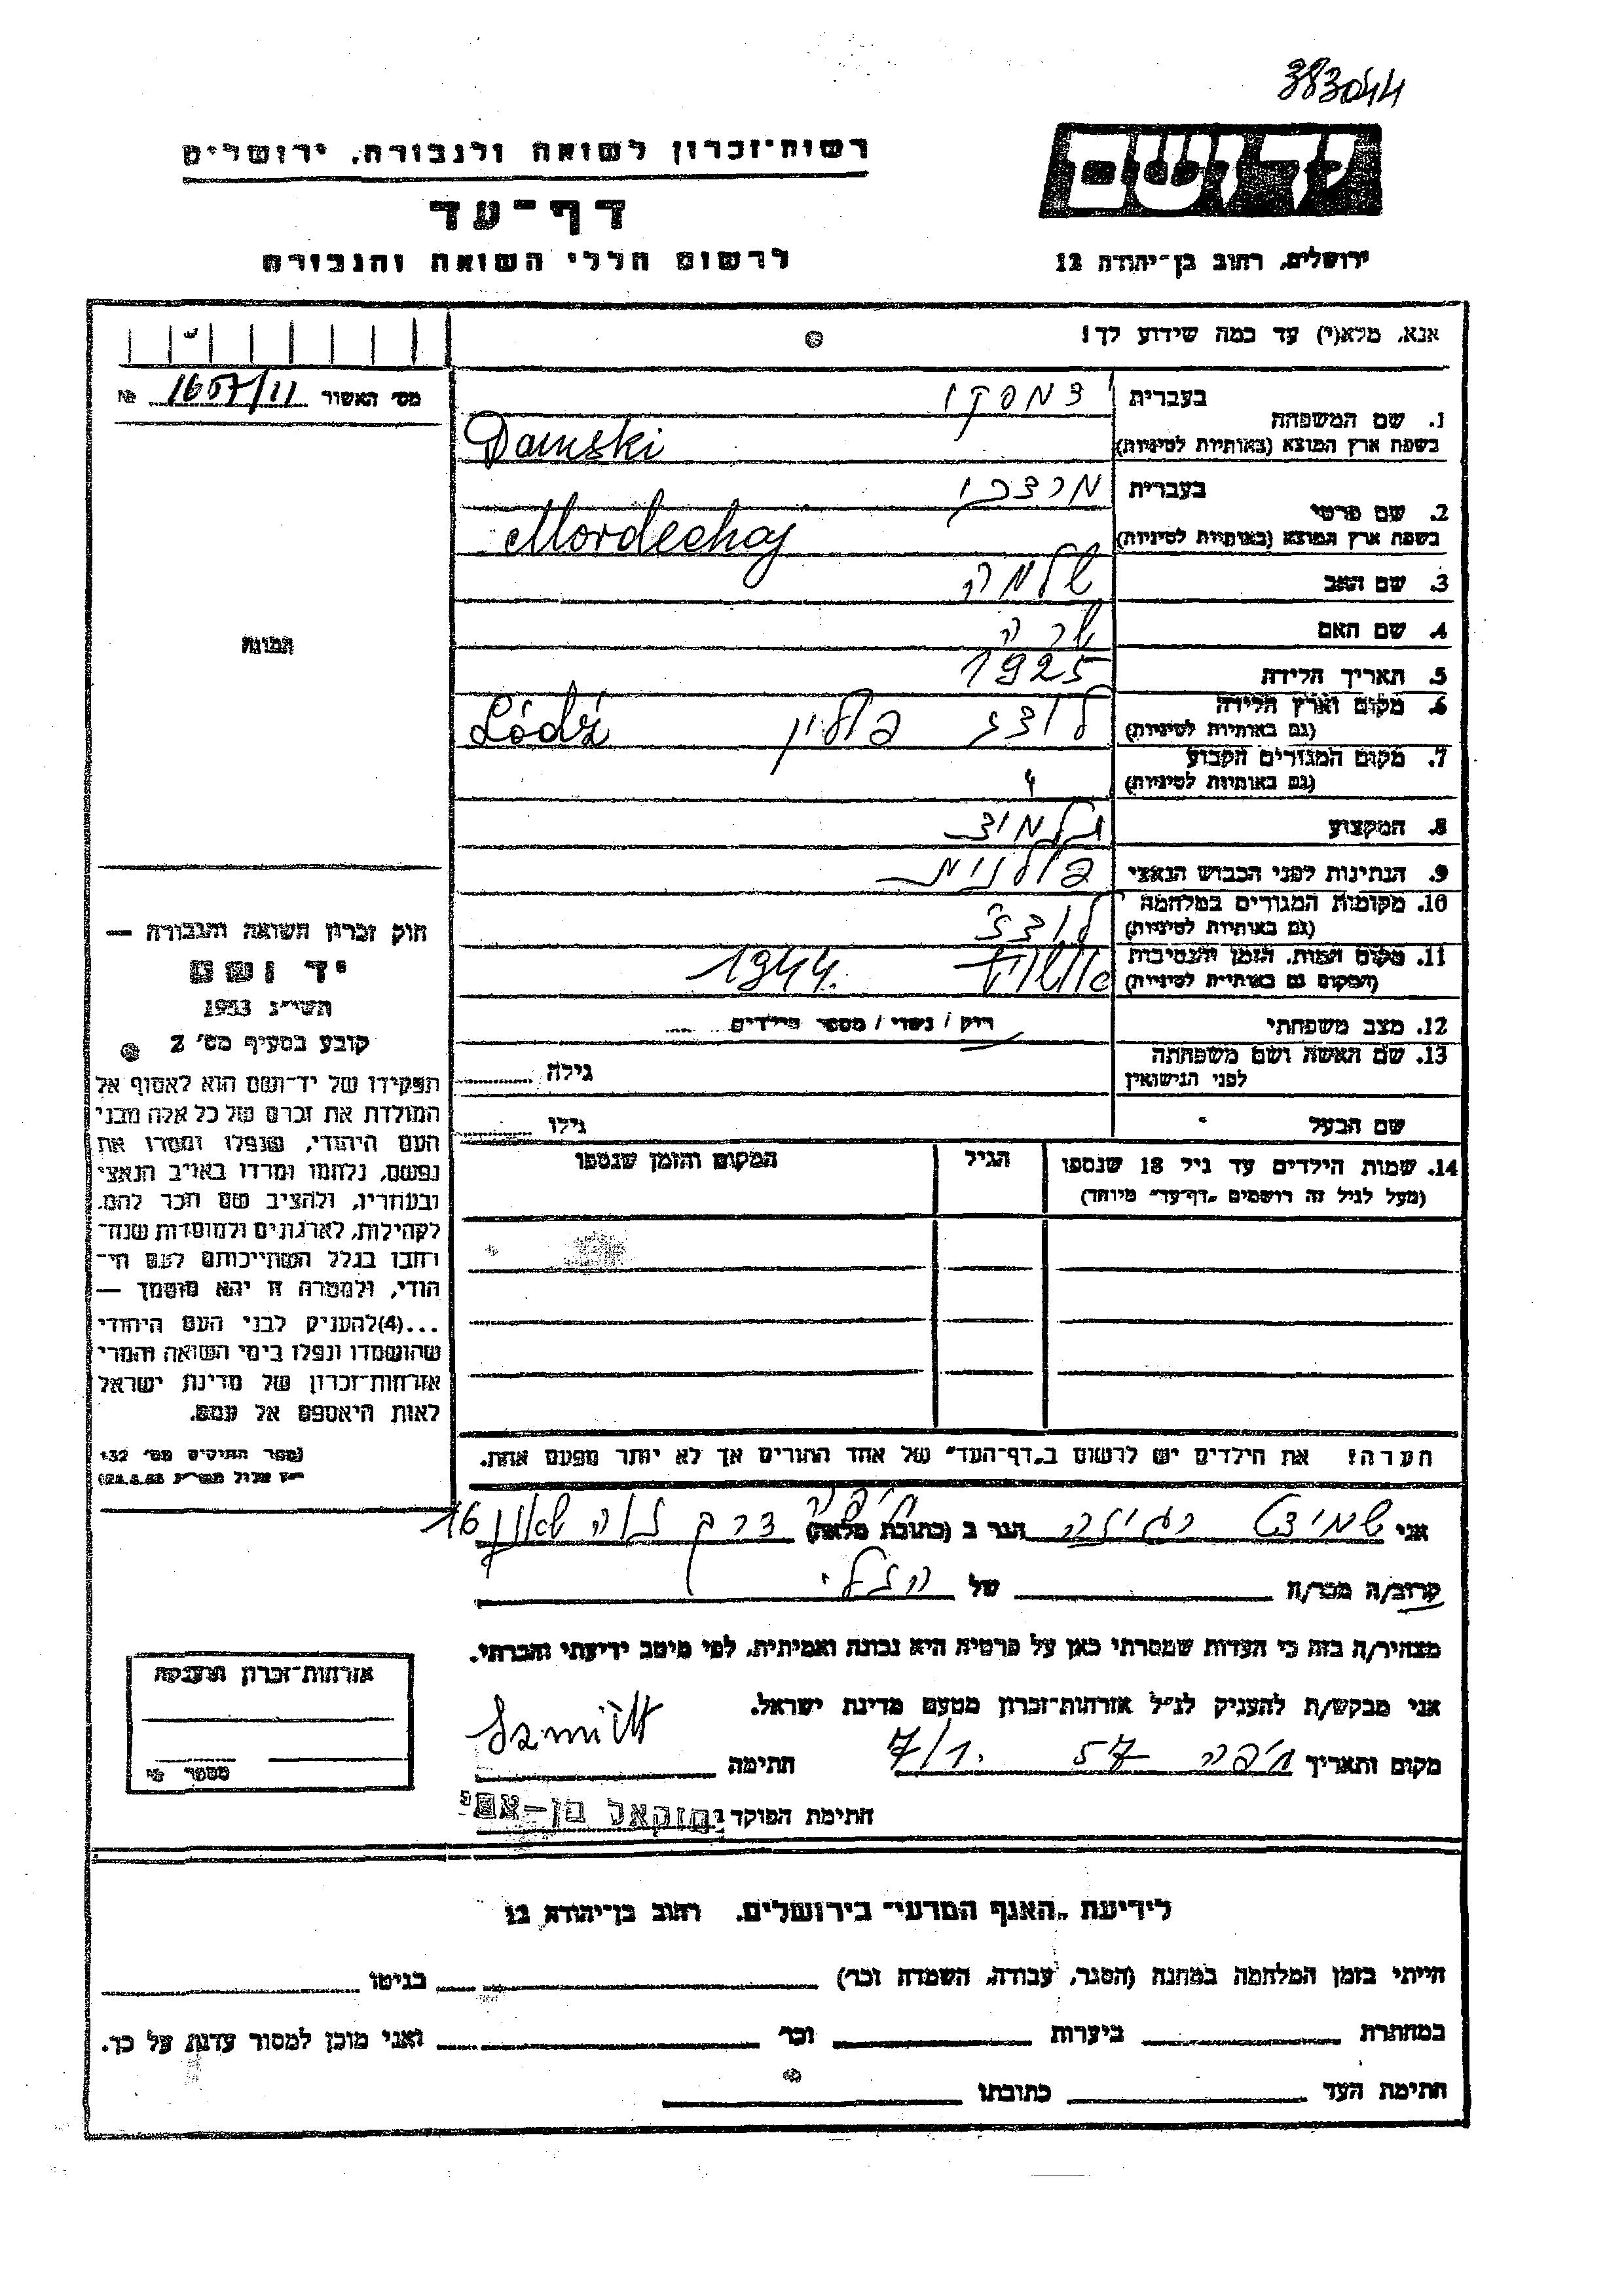 383044
רשות־זכרון לשואה ולגבורה, ירושלים
יד ושם
דף־עד
לרשום חללי השואה והגבורה
ירושלים, רחוב בן־יהודה 12
אנא, מלא(י) עד כמה שידוע לך!
מס' האשור 1657/11 №
1. שם המשפחה
בעברית דמסקי
בשפת ארץ המוצא (באותיות לטיניות) Damski
2. שם פרטי
בעברית מרדכי
בשפת ארץ המוצא (באותיות לטיניות) Mordechaj
3. שם האב שלמה
4. שם האם שרה
5. תאריך הלידה 1925
6. מקום וארץ הלידה
(גם באותיות לטיניות) לודז פולין Łódź
7. מקום המגורים הקבוע
(גם באותיות לטיניות) "
8. המקצוע תלמיד
9. הנתינות לפני הכבוש הנאצי פולנית
10. מקומות המגורים במלחמה
(גם באותיות לטיניות) לודז'
11. מקום המות, הזמן והנסיבות
(המקום גם באותיות לטיניות) אושויץ 1944.
12. מצב משפחתי רוק / נשוי / מספר הילדים
13. שם האשה ושם משפחתה
לפני הנישואין גילה
שם הבעל גילו
14. שמות הילדים עד גיל 18 שנספו הגיל המקום והזמן שנספו
(מעל לגיל זה רושמים "דף־עד" מיוחד)
הערה! את הילדים יש לרשום ב"דף־העד" של אחד ההורים אך לא יותר מפעם אחת.
התמונה
חוק זכרון השואה והגבורה —
יד ושם
תשי"ג 1953
קובע בסעיף מס' 2
תפקידו של יד־ושם הוא לאסוף אל
המולדת את זכרם של כל אלה מבני
העם היהודי, שנפלו ומסרו את
נפשם, נלחמו ומרדו באויב הנאצי
ובעוזריו, ולהציב שם וזכר להם,
לקהילות, לארגונים ולמוסדות שנח־
רבו בגלל השתייכותם לעם הי־
הודי, ולמטרה זו יהא מוסמך —
...(4)להעניק לבני העם היהודי
שהושמדו ונפלו בימי השואה והמרי
אזרחות־זכרון של מדינת ישראל
לאות היאספם אל עמם.
(ספר החוקים מס' 132
אני שמידט רגינה הגר ב (כתובת מלאה) חיפה דרך נוה שאנן 16
קרוב/ה מכר/ה של הנ"ל
מצהיר/ה בזה כי העדות שמסרתי כאן על פרטיה היא נכונה ואמיתית, לפי מיטב ידיעתי והכרתי.
אני מבקש/ת להעניק לנ"ל אזרחות־זכרון מטעם מדינת ישראל.
מקום ותאריך חיפה 7/1. 57 חתימה Szmidt
חתימת הפוקד יחזקאל בן־
אזרחות־זכרון הוענקה
מספר
לידיעת "האגף המדעי" בירושלים, רחוב בן־יהודה 12
הייתי בזמן המלחמה במחנה (הסגר, עבודה, השמדה וכו') בגיטו
במחתרת ביערות וכו' ואני מוכן למסור עדות על כך.
חתימת העד כתובתו